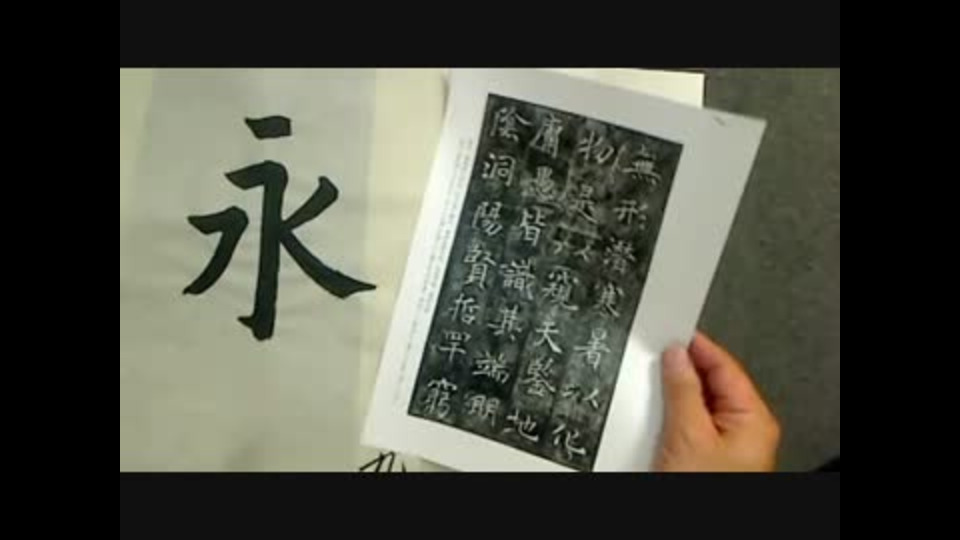 永
無形潛寒暑以化
物是以窺天鑒地
庸愚皆識其端明
陰洞陽賢哲罕窮